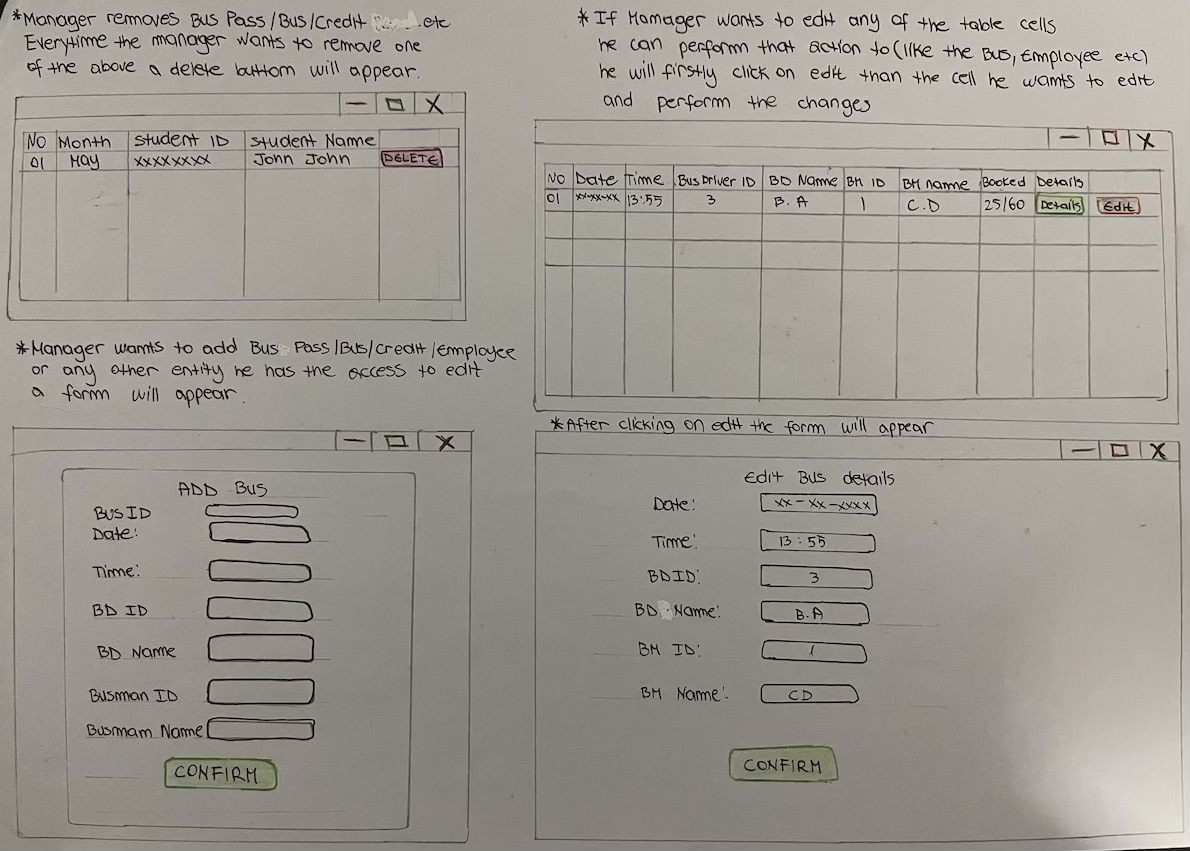 *Manager removes Bus Pass/Bus/Credit etc
Everytime the manager wants to remove one
of the above a delete button will appear.
— □ X
NO Month Student ID Student Name
01 May xxxxxxxx John John DELETE
*Manager wants to add Bus Pass/Bus/credit/Employee
or any other entity he has the access to edit
a form will appear.
— □ X
ADD Bus
BUS ID
Date:
Time:
BD ID
BD Name
Busman ID
Busman Name
CONFIRM
* If Manager wants to edit any of the table cells
he can perform that action to (like the Bus, Employee etc)
he will firstly click on edit than the cell he wants to edit
and perform the changes
— □ X
NO Date Time Bus Driver ID BD Name BM ID BM name Booked Details
01 xx-xx-xx 13:55 3 B.A 1 C.D 25/60 Details Edit
*After clicking on edit the form will appear
— □ X
Edit Bus details
Date: xx-xx-xxxx
Time: 13:55
BDID: 3
BD Name: B.A
BM ID: 1
BM Name: CD
CONFIRM